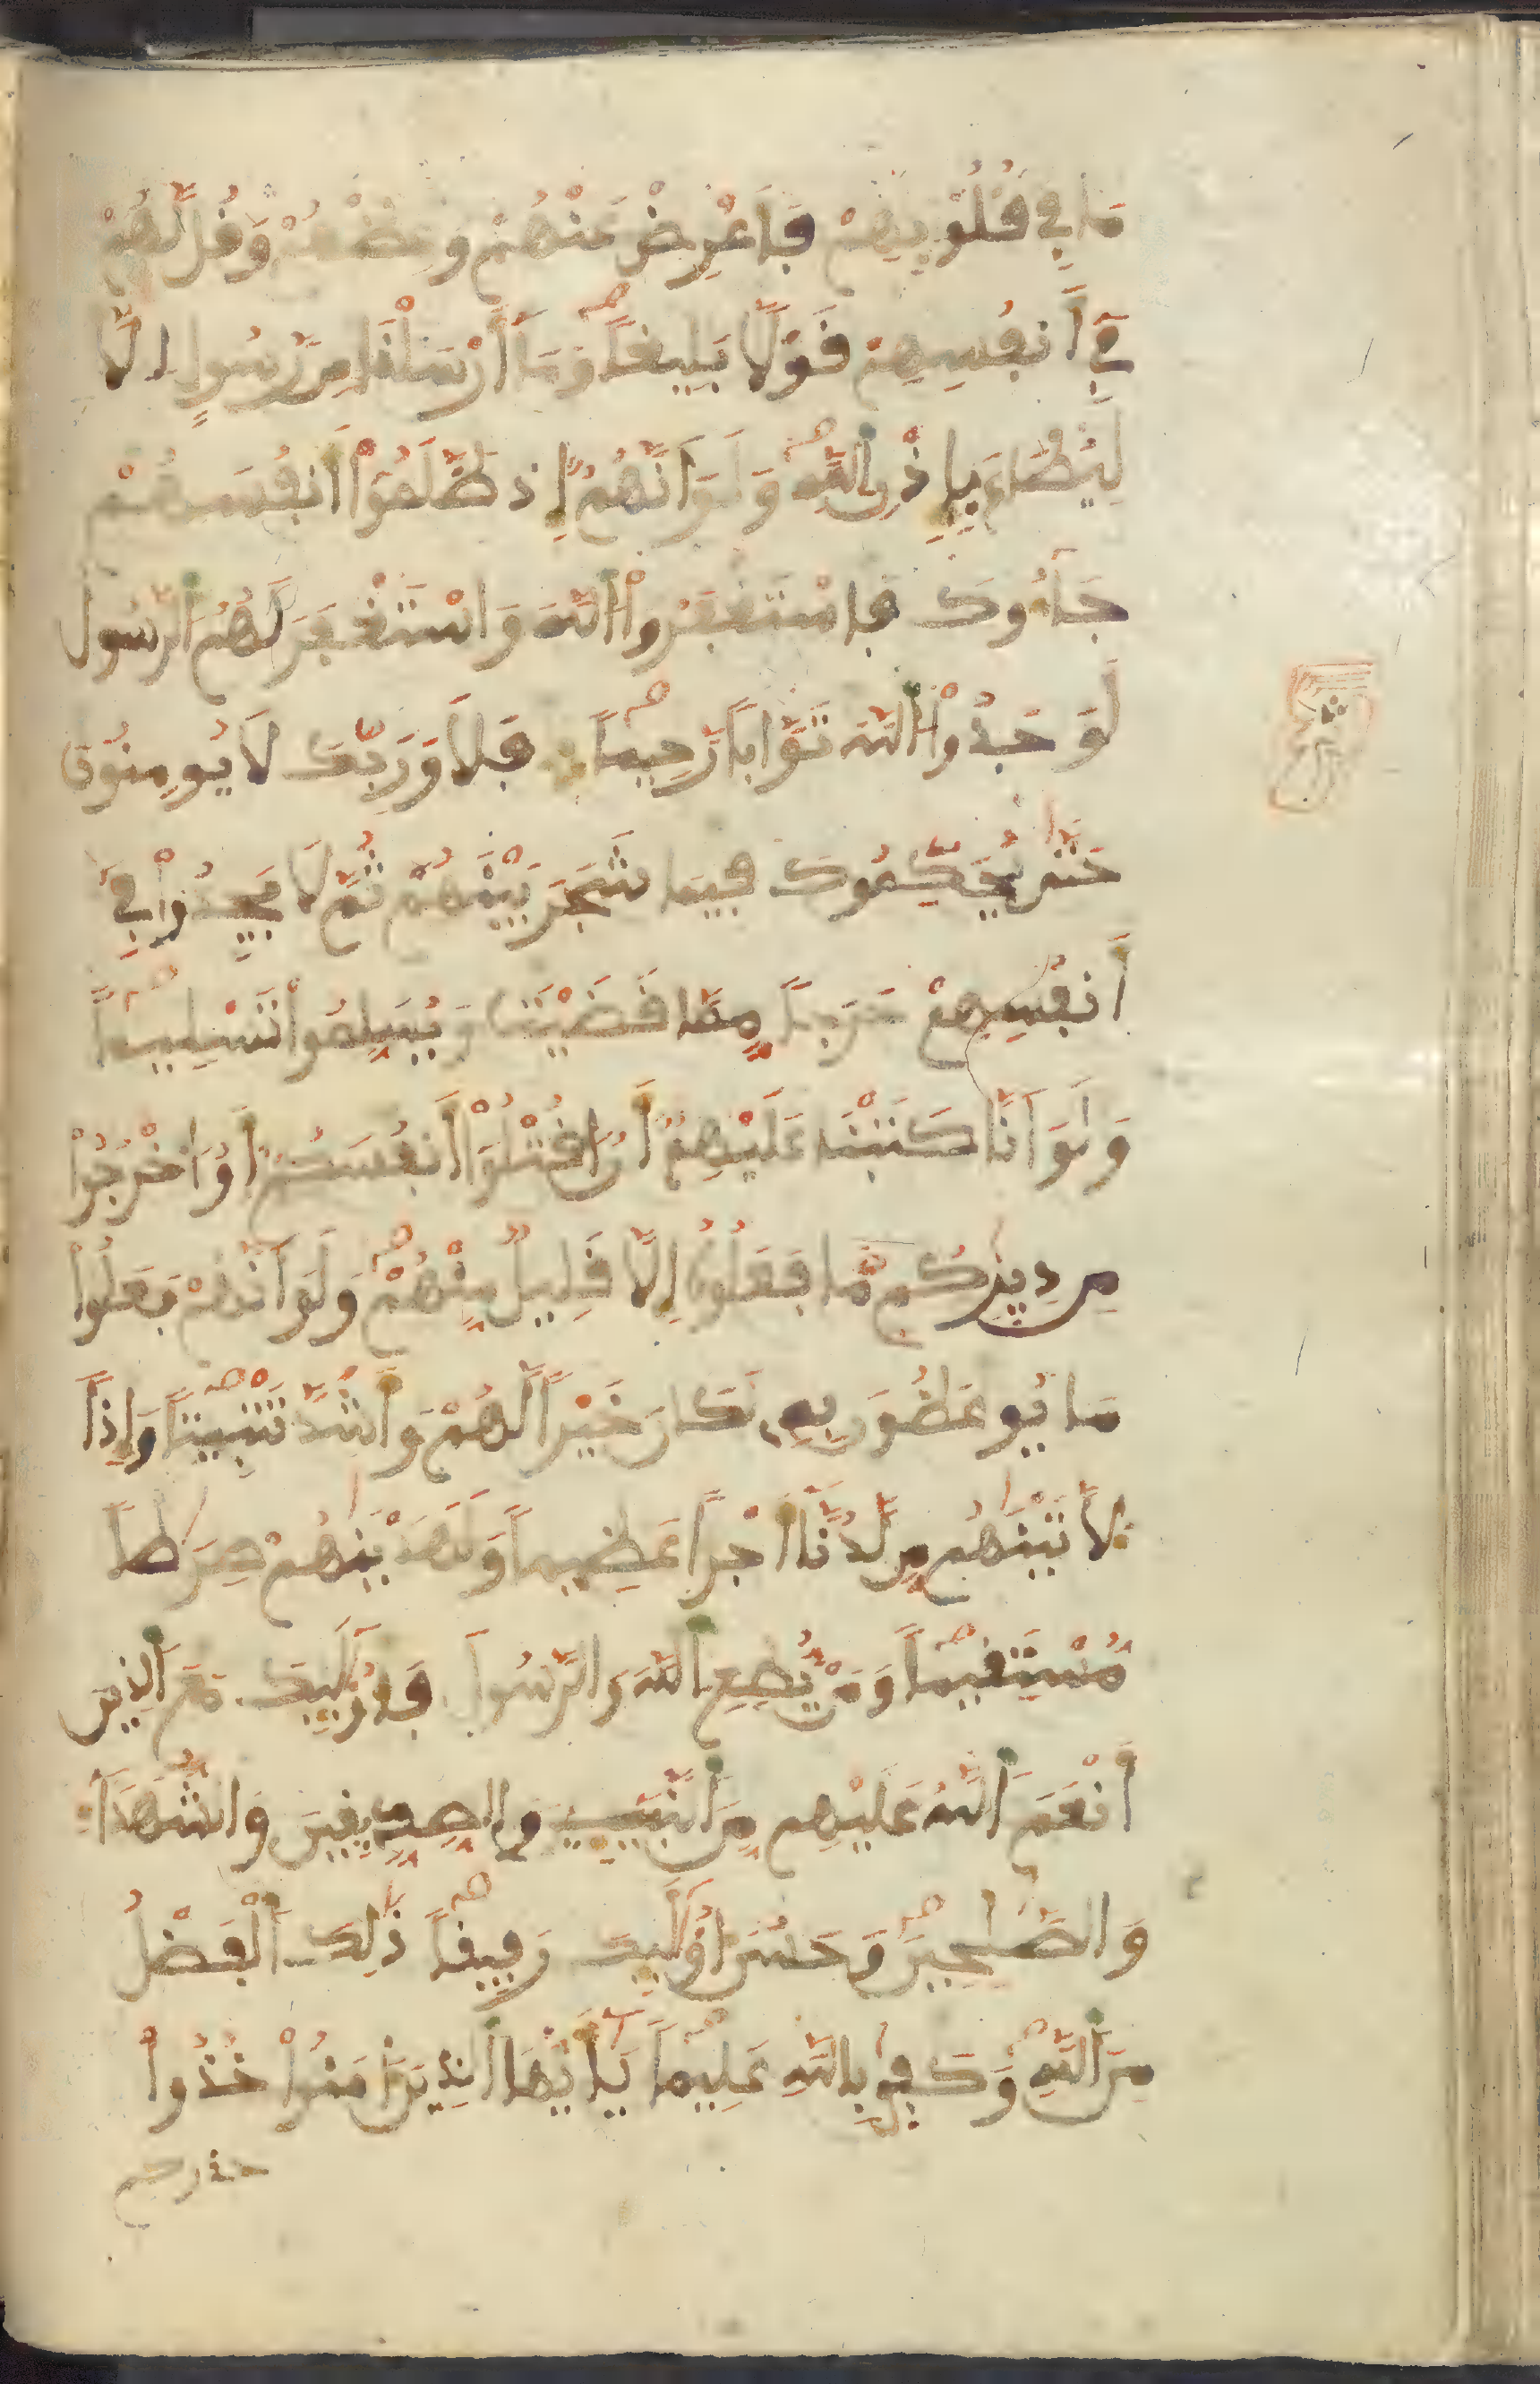 مَا فِي قُلُوبِهِمْ فَأَعْرِضْ عَنْهُمْ وَعِظْهُمْ وَقُل لَّهُمْ
فِي أَنفُسِهِمْ قَوْلًا بَلِيغاً وَمَا أَرْسَلْنَا مِن رَّسُولٍ إِلَّا
لِيُطَاعَ بِإِذْنِ اللَّهِ وَلَوَ انَّهُمْ إِذ ظَّلَمُوا أَنفُسَهُمْ
جَاءُوكَ فَاسْتَغْفَرُوا اللَّهَ وَاسْتَغْفَرَ لَهُمُ الرَّسُولُ
لَوَجَدُوا اللَّهَ تَوَّاباً رَّحِيماً فَلَا وَرَبِّكَ لَا يُومِنُونَ
حَتَّى يُحَكِّمُوكَ فِيمَا شَجَرَ بَيْنَهُمْ ثُمَّ لَا يَجِدُوا فِي
أَنفُسِهِمْ حَرَجاً مِّمَّا قَضَيْتَ وَيُسَلِّمُوا تَسْلِيماً
وَلَوَ انَّا كَتَبْنَا عَلَيْهِمْ أَنُ اقْتُلُوا أَنفُسَكُمْ أَوُ اخْرُجُوا
مِن دِيَٰرِكُم مَّا فَعَلُوهُ إِلَّا قَلِيلٌ مِّنْهُمْ وَلَوَ انَّهُمْ فَعَلُوا
مَا يُوعَظُونَ بِهِ لَكَانَ خَيْراً لَّهُمْ وَأَشَدَّ تَثْبِيتاً وَإِذاً
لَّأَتَيْنَٰهُم مِّن لَّدُنَّا أَجْراً عَظِيماً وَلَهَدَيْنَٰهُمْ صِرَٰطاً
مُّسْتَقِيماً وَمَنْ يُّطِعِ اللَّهَ وَالرَّسُولَ فَأُوْلَٰئِكَ مَعَ الَّذِينَ
أَنْعَمَ اللَّهُ عَلَيْهِم مِّنَ النَّبِيِّينَ وَالصِّدِّيقِينَ وَالشُّهَدَاءِ
وَالصَّٰلِحِينَ وَحَسُنَ أُوْلَٰئِكَ رَفِيقاً ذَٰلِكَ الْفَضْلُ
مِنَ اللَّهِ وَكَفَىٰ بِاللَّهِ عَلِيماً يَٰأَيُّهَا الَّذِينَ ءَامَنُوا خُذُوا
حذركم